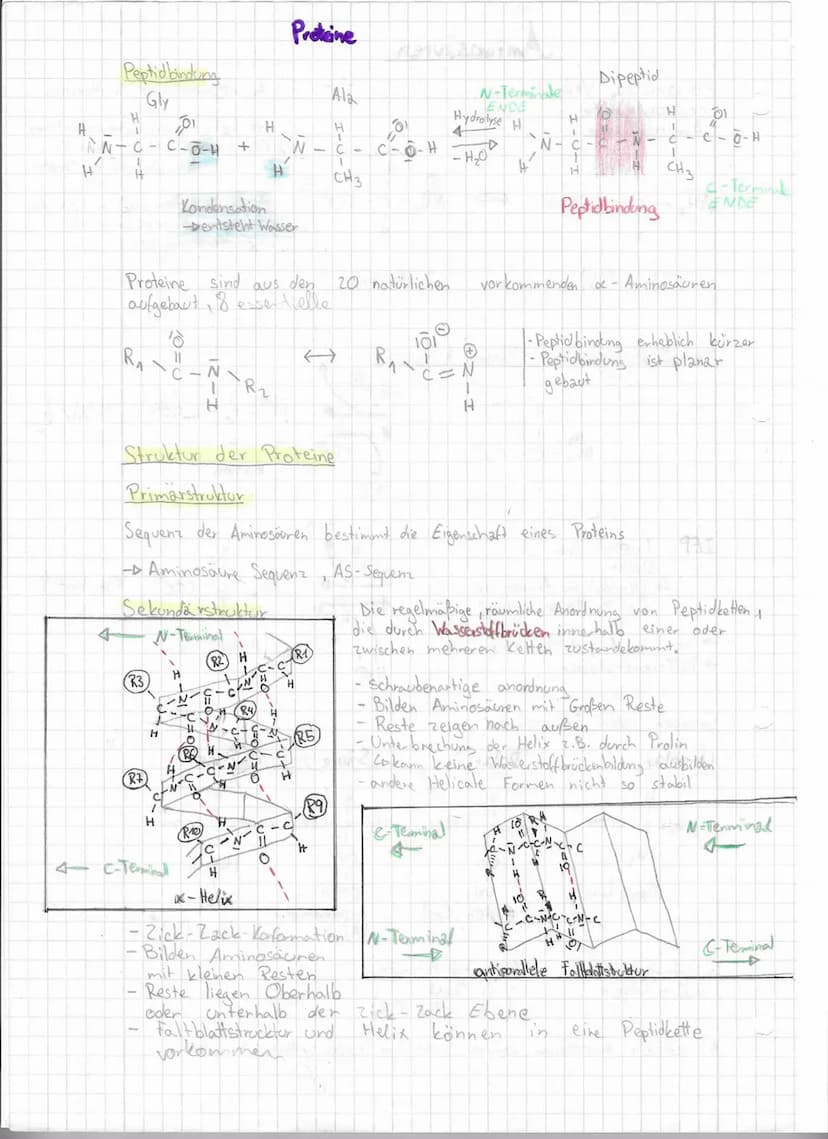 Proteine
Peptidbindung
Gly
Ala
Dipeptid
N-Terminale
ENDE
Hydrolyse
-H₂O
H N̄ - C - C - O̅ - H + H N̄ - C - C - O̅ - H
CH₃
CH₃
C-Terminal
ENDE
Peptidbindung
Kondensation
→ entsteht Wasser
Proteine sind aus den 20 natürlichen vorkommenden α-Aminosäuren
aufgebaut, 8 essentielle
R₁ C - N̄ R₂ H ↔ R₁ C = N H
- Peptidbindung erheblich kürzer
- Peptidbindung ist planar
gebaut
Struktur der Proteine
Primärstruktur
Sequenz der Aminosäuren bestimmt die Eigenschaft eines Proteins
→ Aminosäure Sequenz, AS-Sequenz
Sekundärstruktur
Die regelmäßige, räumliche Anordnung von Peptidketten,
die durch Wasserstoffbrücken innerhalb einer oder
zwischen mehreren Ketten zustandekommt.
- Schraubenartige anordnung
- Bilden Aminosäuren mit Großen Reste
- Reste zeigen nach außen
- Unterbrechung der Helix z.B. durch Prolin
↳ kann keine Wasserstoffbrückenbildung ausbilden
- andere Helicale Formen nicht so stabil
N-Terminal
R1
R2
R3
R4
R5
R6
R7
R9
R10
C-Terminal
α-Helix
C-Terminal
N-Terminal
N-Terminal
C-Terminal
antiparallele Faltblattstruktur
- Zick-Zack-Koformation
- Bilden Aminosäuren
mit kleinen Resten
- Reste liegen Oberhalb
oder unterhalb der Zick-Zack Ebene
- Faltblattstrucktur und Helix können in eine Peptidkette
vorkommen